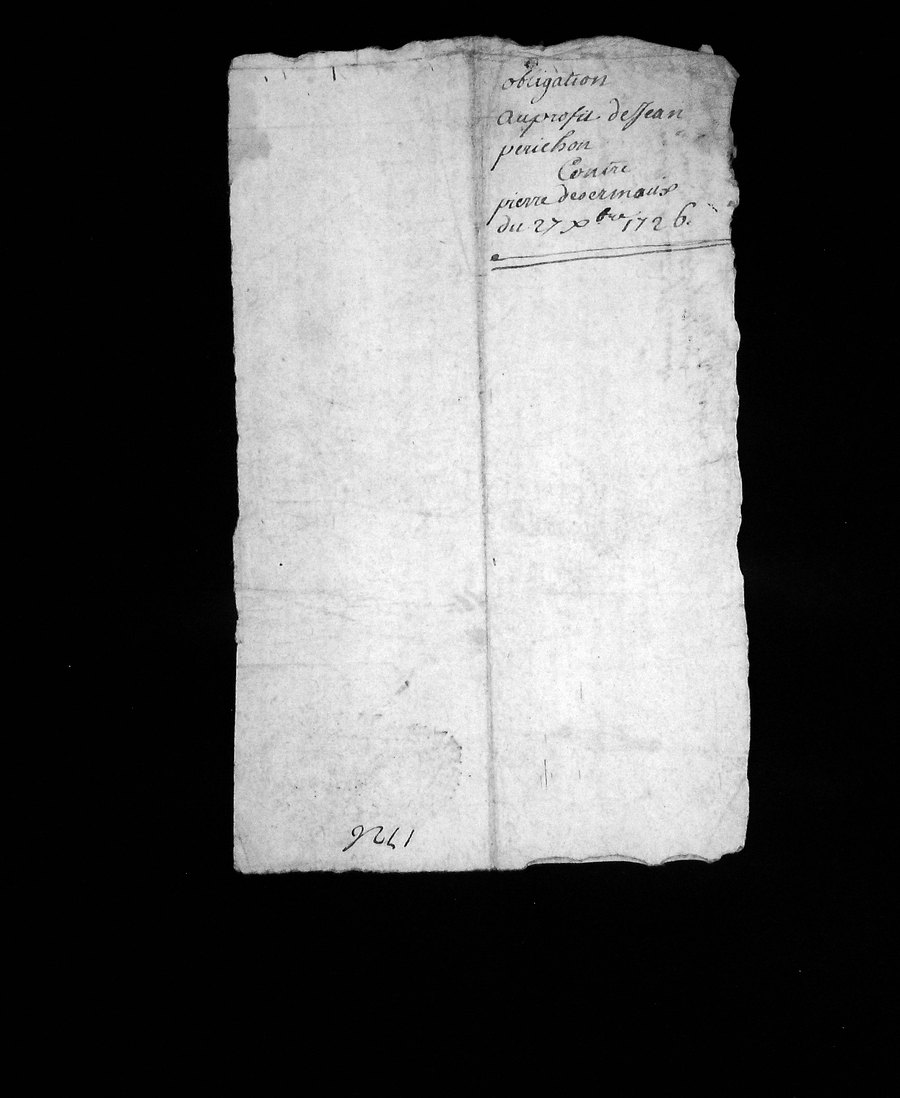 obligation
auprofit deJean
perichon
Contre
pierre desermaux
du 27 Xbre 1726.
1726